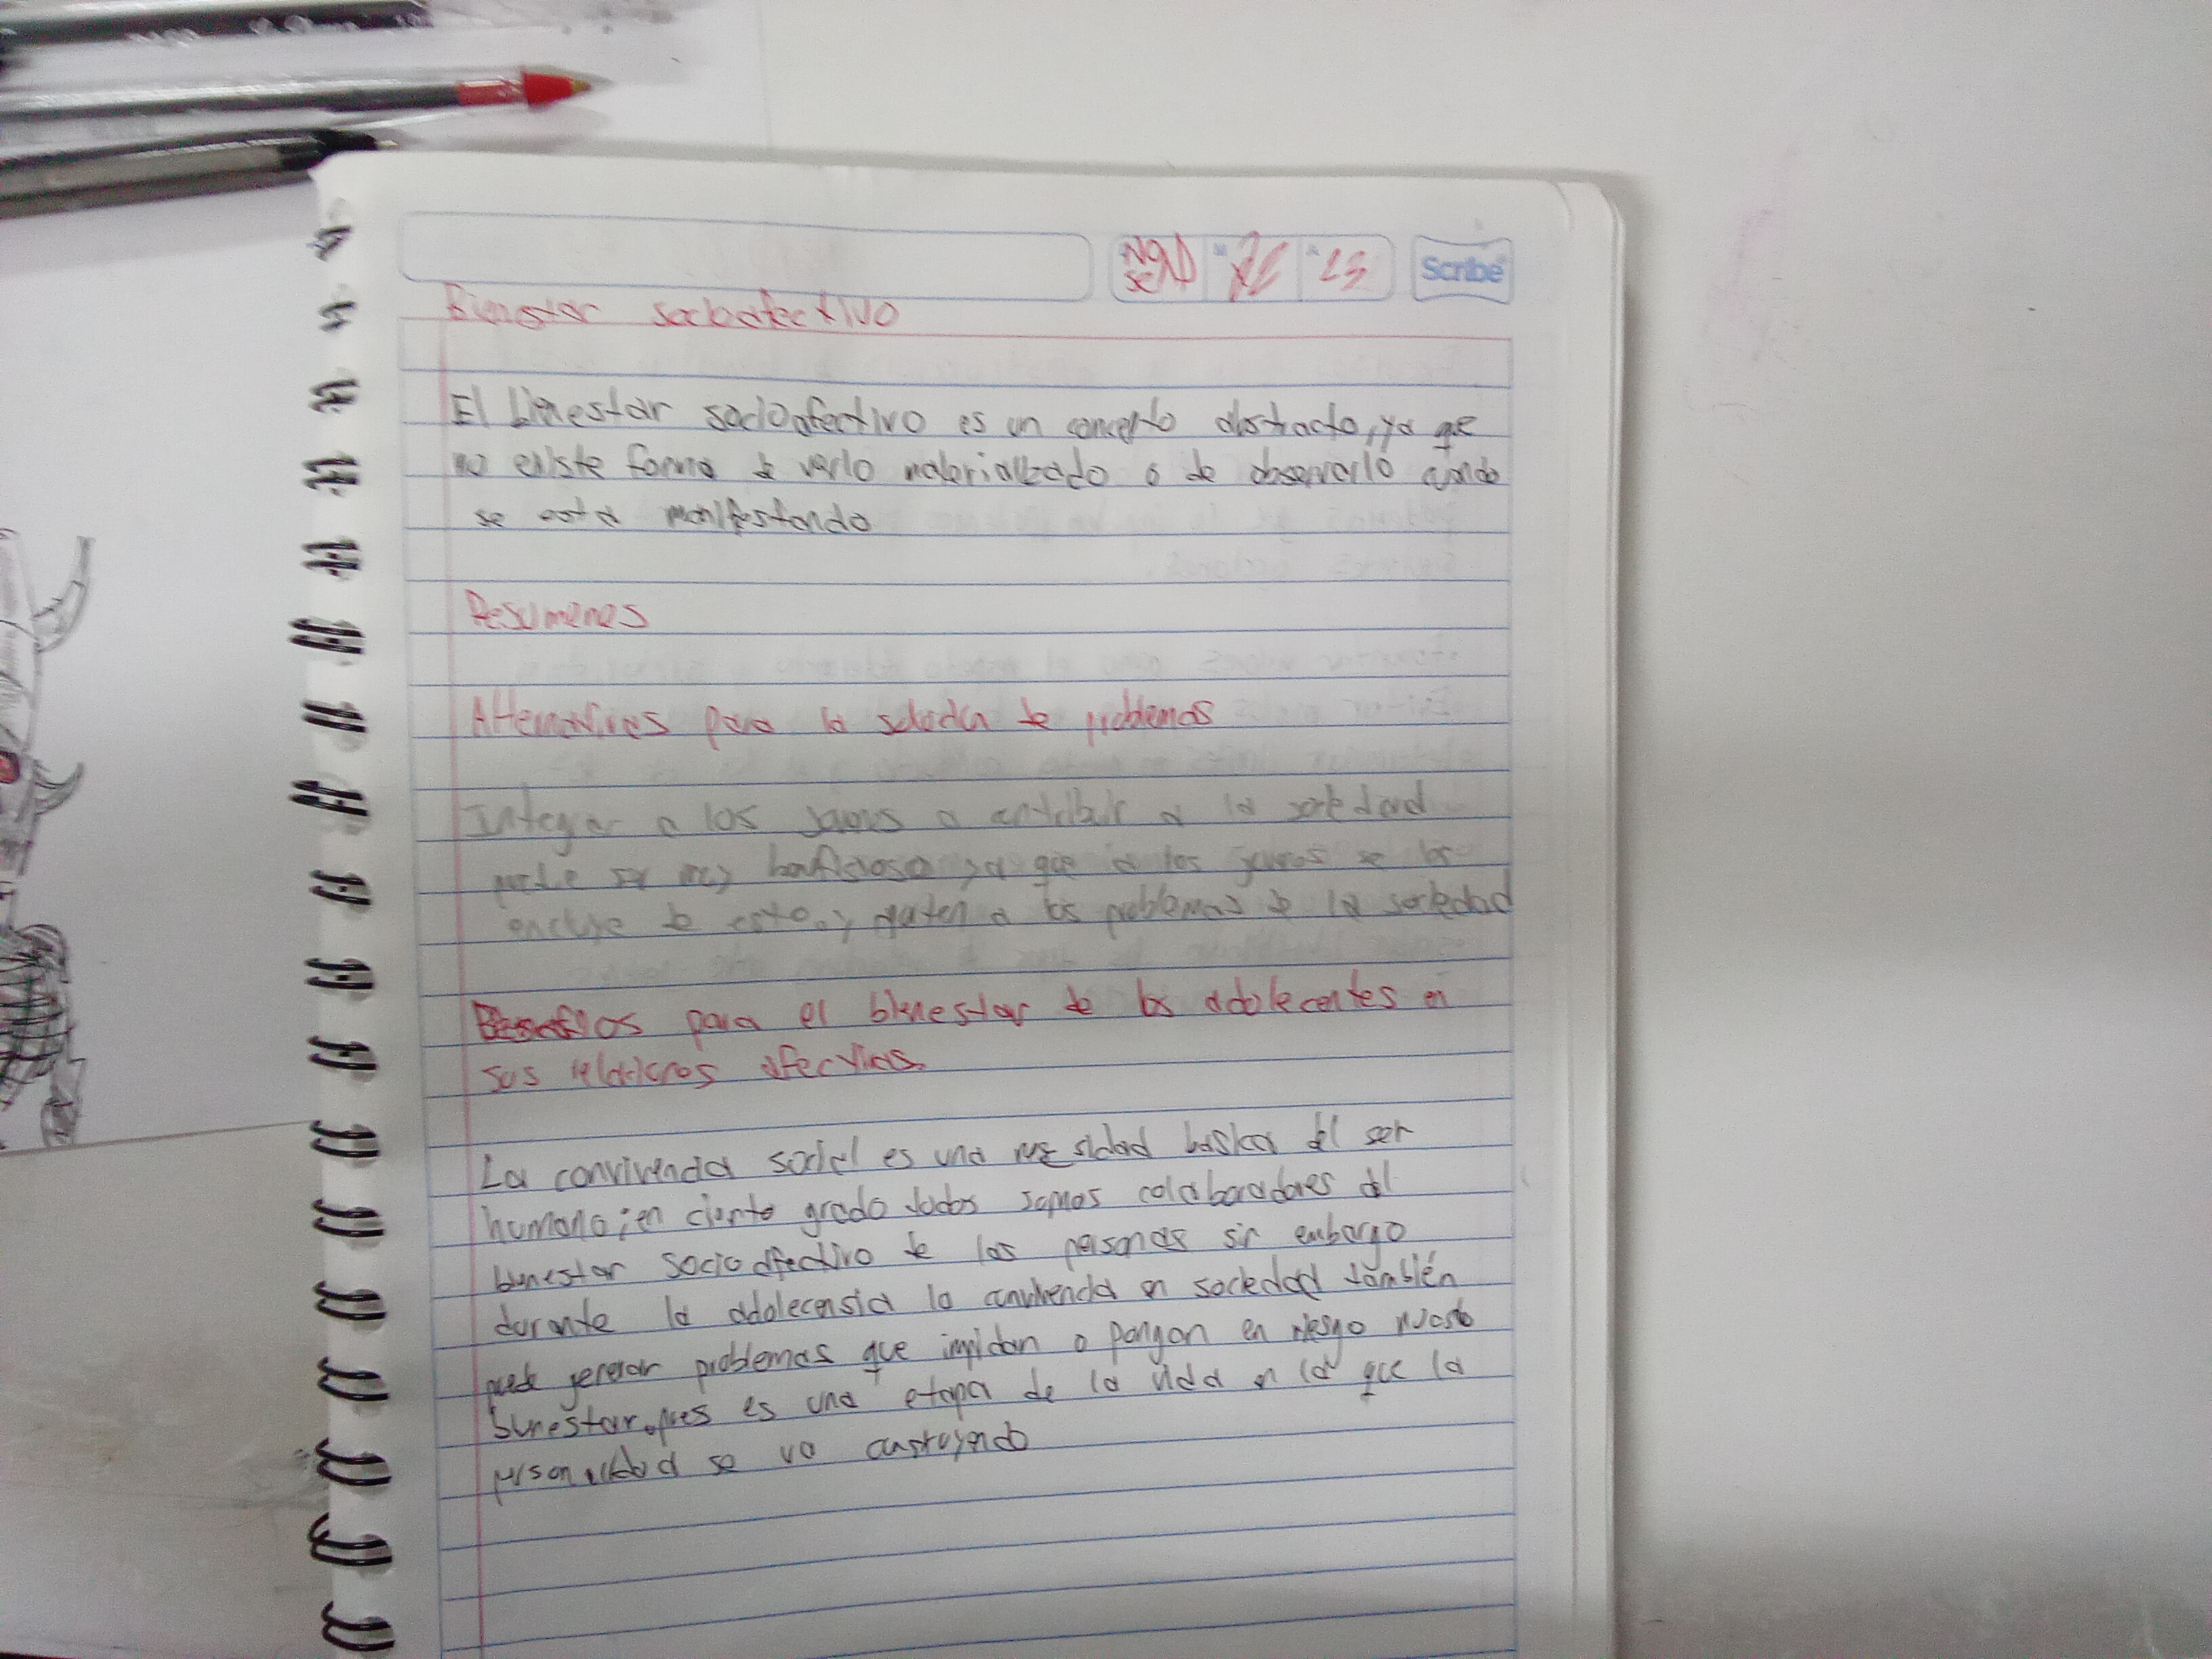 No se 23
Scribe
Bienestar socioafectivo
El bienestar socioafectivo es un concepto abstracto, ya que
no existe forma de verlo materializado o de observarlo cuando
se esta manifestando
Resumenes
Alternativas para la solución de problemas
Integrar a los jovenes a contribuir a la sociedad
puede ser muy ya que a los jovenes se les
de esto, y a los problemas de la sociedad
para el bienestar de los adolecentes en
sus relaciones afectivas.
La convivencia social es una basica del ser
humano; en cierto grado todos somos colaboradores del
bienestar socioafectivo de las personas sin embargo
durante la adolecensia la convivencia en sociedad también
puede generar problemas que impidan o pongan en riesgo nuestro
bienestar, pues es una etapa de la vida en la que la
personalidad se va construyendo